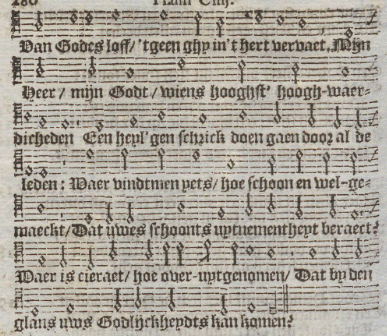 280 Psalm Ciij.
Van Godes loff/'tgeen ghy in't hert vervaet. Mijn
Heer/ mijn Godt/ wiens hooghst' hoogh-waer-
dicheden Een heyl'gen schrick doen gaen door al de
leden: Waer vindtmen yets/ hoe schoon en wel-ge-
maeckt/ Dat uwes schoonts uytnementheyt beraeckt?
Waer is cieraet/ hoe over-uytgenomen/ Dat by den
glans uws Godlijckheydts kan komen?